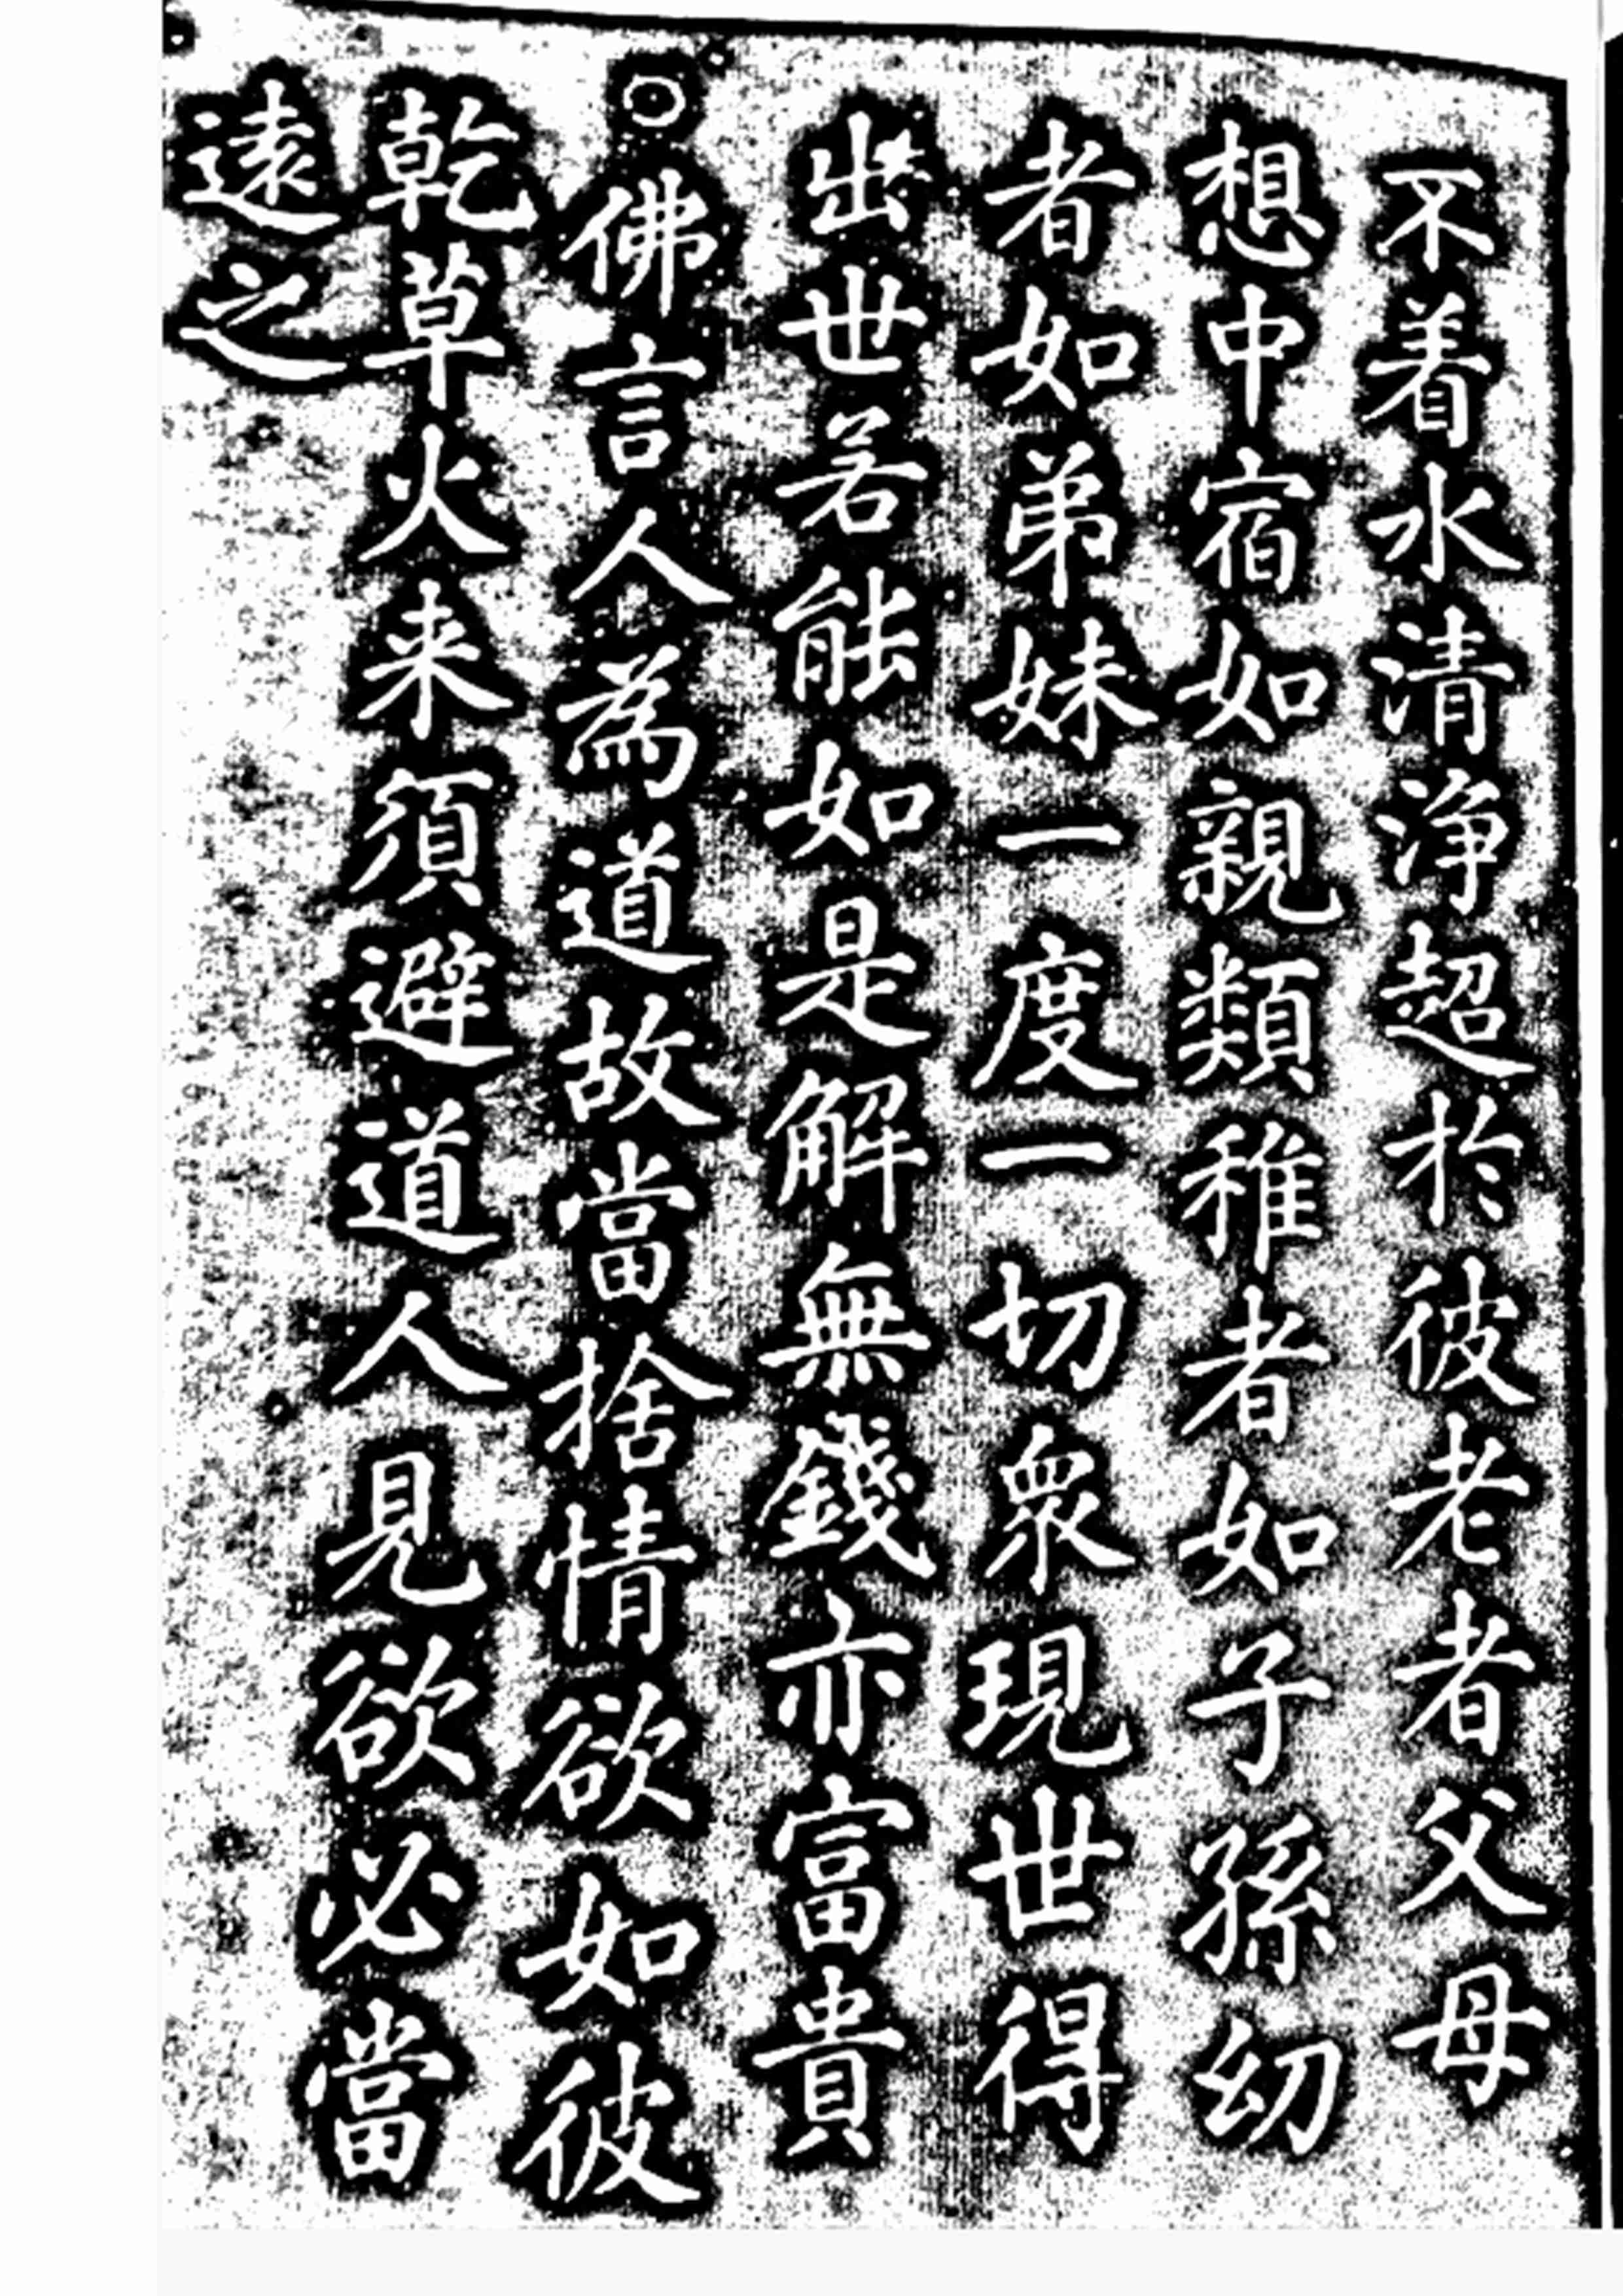 不着水清淨超於彼老者父母
想中宿如親類稚者如子孫幼
者如弟妹一度一切衆現世得
出世若能如是解無錢亦富貴
○佛言人為道故當捨情欲如彼
乾草火来須避道人見欲必當
遠之